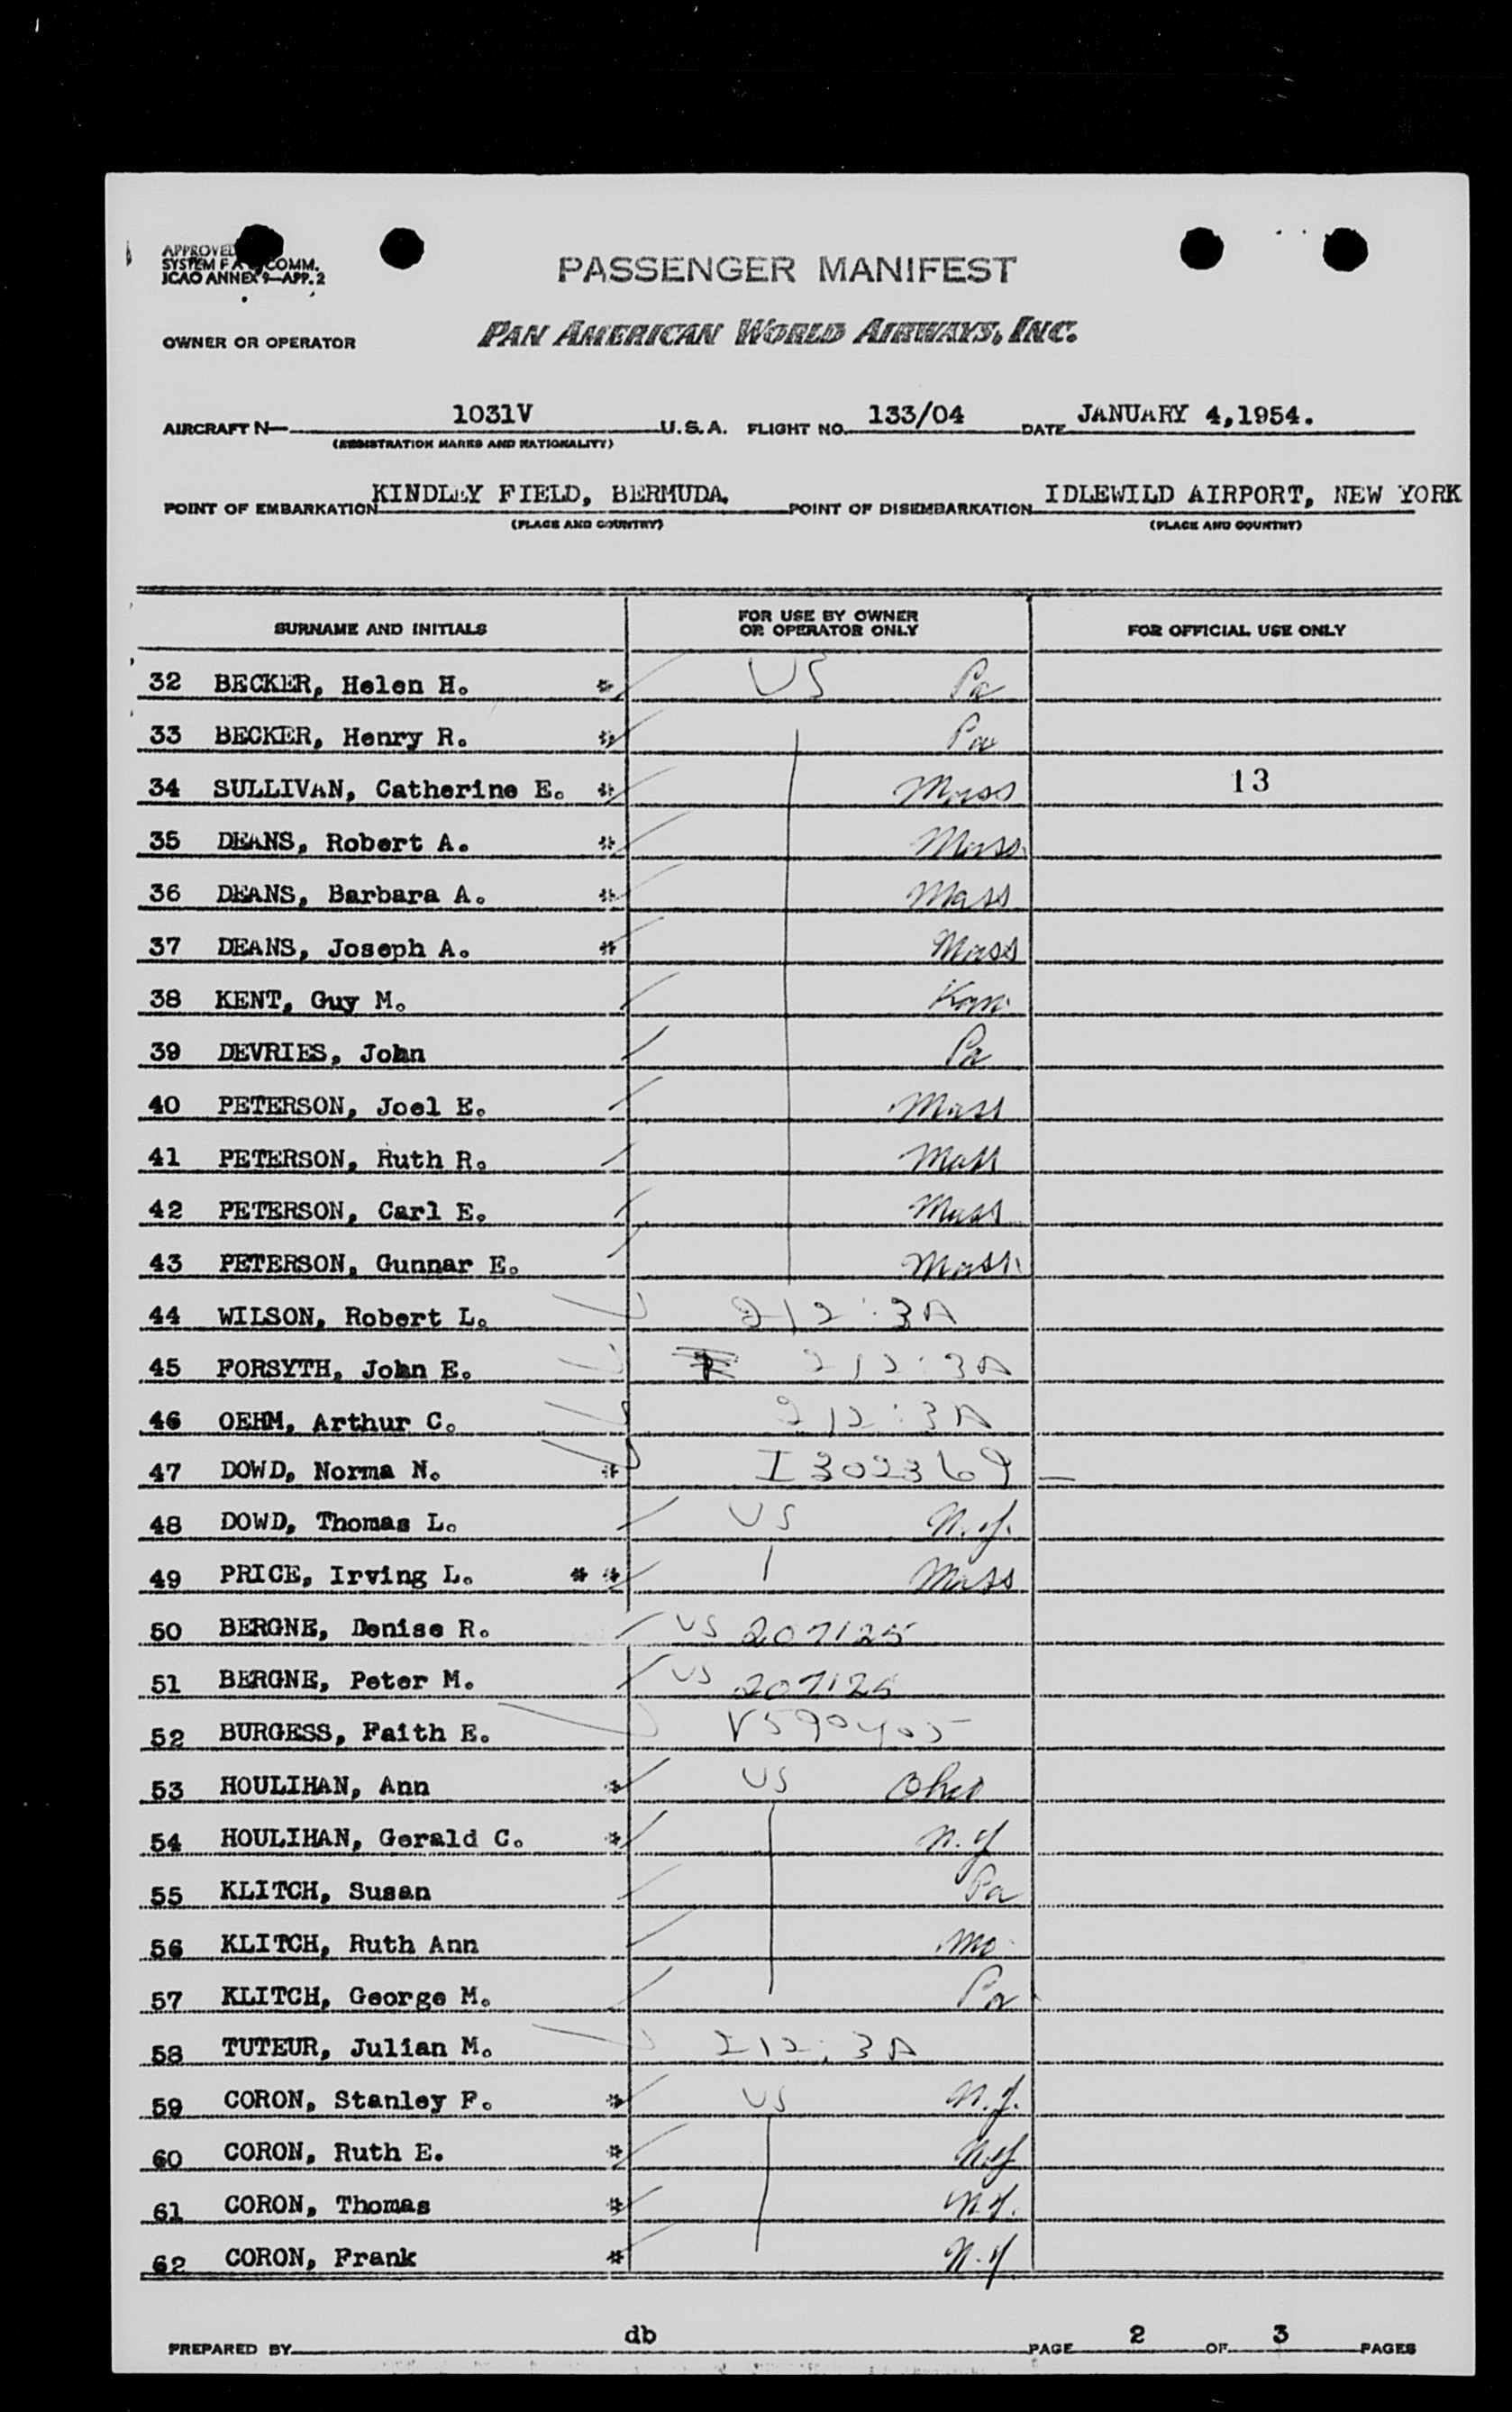 APPROVED
SYSTEM F A COMM.
ICAO ANNEX 9—APP. 2
PASSENGER MANIFEST
OWNER OR OPERATOR PAN AMERICAN WORLD AIRWAYS, INC.
AIRCRAFT N— 1031V U.S.A. FLIGHT NO. 133/04 DATE JANUARY 4,1954.
(REGISTRATION MARKS AND NATIONALITY)
POINT OF EMBARKATION KINDLEY FIELD, BERMUDA. POINT OF DISEMBARKATION IDLEWILD AIRPORT, NEW YORK
(PLACE AND COUNTRY) (PLACE AND COUNTRY)
SURNAME AND INITIALS FOR USE BY OWNER OR OPERATOR ONLY FOR OFFICIAL USE ONLY
32 BECKER, Helen H. * US Pa
33 BECKER, Henry R. * Pa
34 SULLIVAN, Catherine E. * Mass 13
35 DEANS, Robert A. * Mass.
36 DEANS, Barbara A. * Mass
37 DEANS, Joseph A. * Mass
38 KENT, Guy M. Kan.
39 DEVRIES, John Pa
40 PETERSON, Joel E. Mass
41 PETERSON, Ruth R. Mass
42 PETERSON, Carl E. Mass
43 PETERSON, Gunnar E. Mass.
44 WILSON, Robert L. 212:3A
45 FORSYTH, John E. 212:3A
46 OEHM, Arthur C. 212:3A
47 DOWD, Norma N. * I302369 —
48 DOWD, Thomas L. US N.Y.
49 PRICE, Irving L. * * Mass
50 BERGNE, Denise R. US 207125
51 BERGNE, Peter M. US 207125
52 BURGESS, Faith E. V590405
53 HOULIHAN, Ann * US Ohio
54 HOULIHAN, Gerald C. * N.Y
55 KLITCH, Susan Pa
56 KLITCH, Ruth Ann Mo
57 KLITCH, George M. Pa
58 TUTEUR, Julian M. 212:3A
59 CORON, Stanley F. * US N.J.
60 CORON, Ruth E. * N.Y
61 CORON, Thomas * N.Y.
62 CORON, Frank * N.Y
PREPARED BY db PAGE 2 OF 3 PAGES